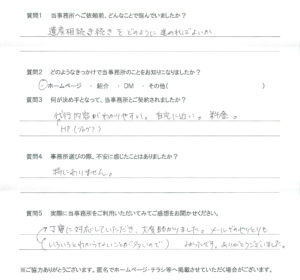 質問1 当事務所へご依頼前、どんなことで悩んでいましたか？
遺産相続手続きをどのように進めればよいか
質問2 どのようなきっかけで当事務所のことをお知りになりましたか？
ホームページ ・ 紹介 ・ DM ・ その他(
質問3 何が決め手となって、当事務所とご契約されましたか？
代行内容がわかりやすい。自宅に近い。料金。
HP(ブログ?)
質問4 事務所選びの際、不安に感じたことはありましたか？
特にありません。
質問5 実際に当事務所をご利用いただいてみてご感想をお聞かせください。
丁寧に対応していただき、大変助かりました。メールでのやりとりも
(いろいろとわからないことが 
よかったです。ありがとうございました。
※ご協力ありがとうございます。匿名でホームページ・チラシ等へ掲載させていただく場合がございます。